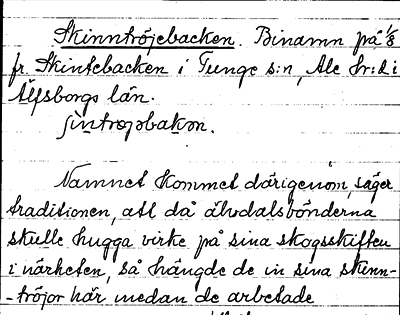 Skinntröjebacken. Binamn på 1/8
fr. Skintebacken i Tunge s:n, Ale hr:d i
Älfsborgs län.
ʃintrøjbakən.
Namnet kommet därigenom, säger
traditionen, att då älvdalsbönderna
skulle hugga virke på sina skogsskiften
i närheten, så hängde de in sina skinn-
-tröjor här medan de arbetade